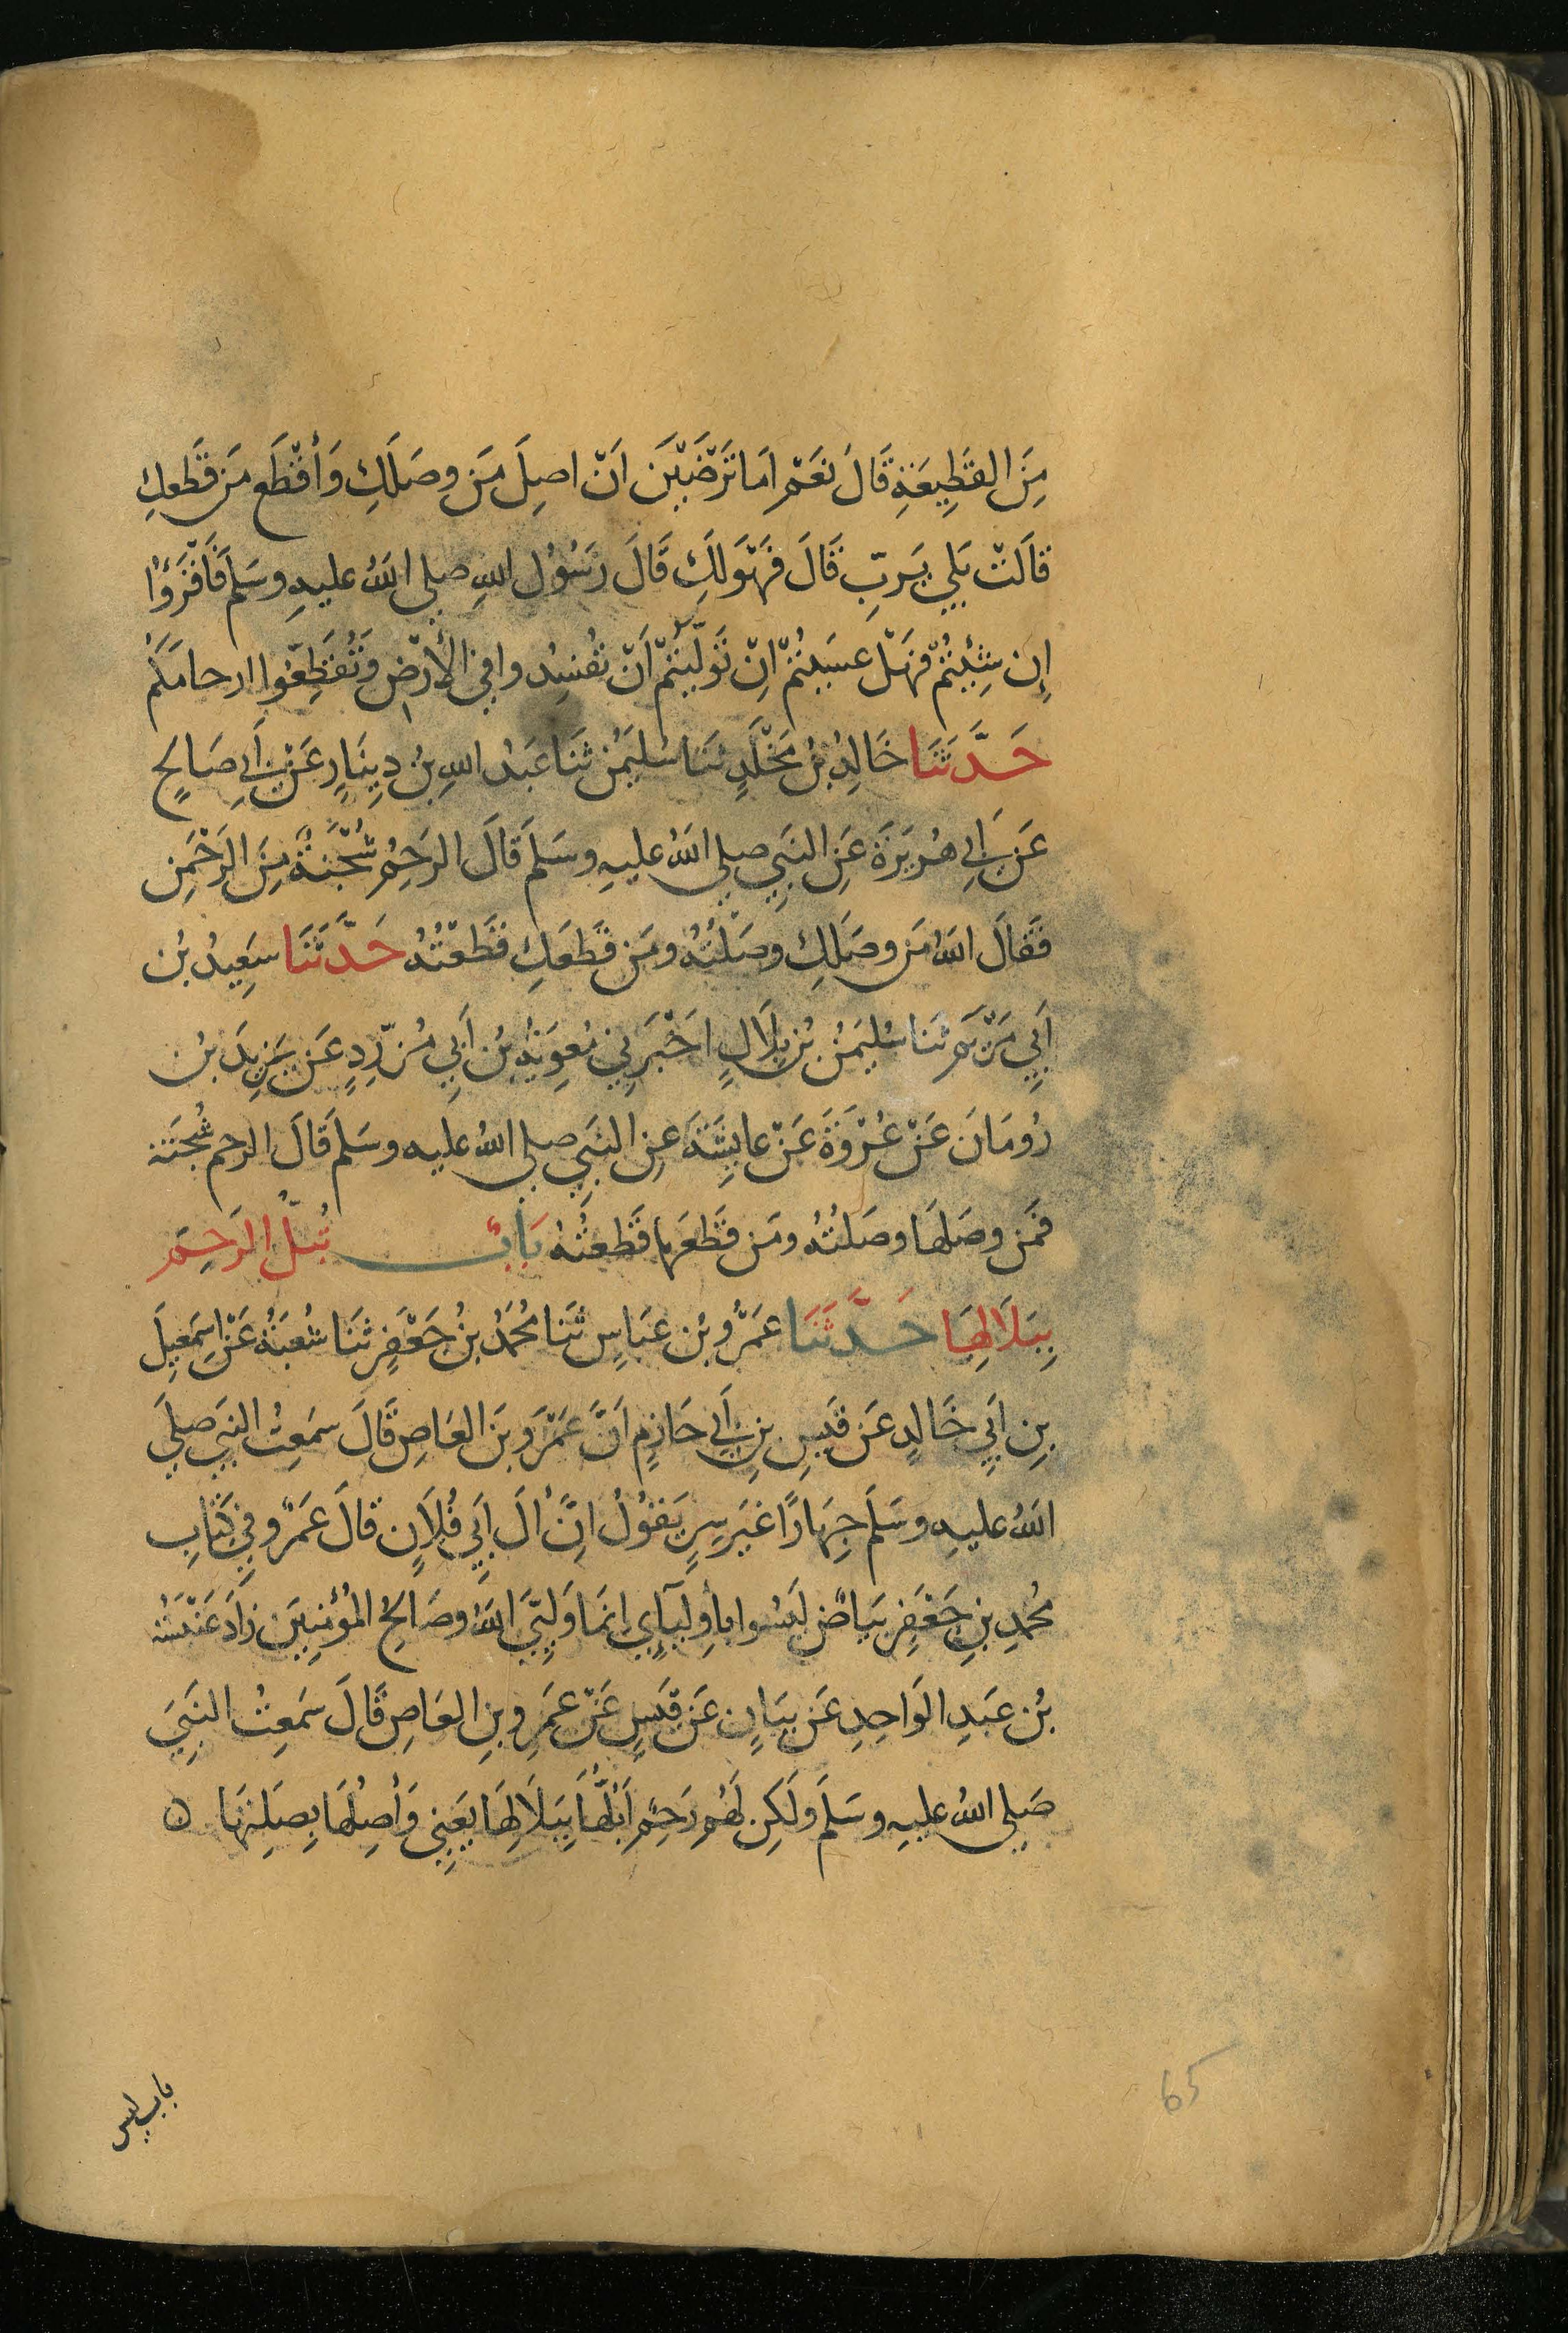 مِنَ القَطِيعَةِ قَالَ نَعَمْ اَمَا تَرْضَيْنَ اَنْ اصِلَ مَن وصَلَكِ وَأَقْطَع مَن قَطَعكِ
قَالَتْ بَلي يَرَبِّ قَالَ فَهْوَ لَكِ قَالَ رَسُوُل اللهِ صلى اللهُ عليهِ وسَلمَ فَاقْرَؤُا
إِن شِئْيتُمْ فَهَلْ عسَيتُمْ اِنْ تَوَلَّيتُمْ اَنْ تُفسِدوا في الأرْضِ وَتُقَطِعّوا ارحامَكُم
حَدَّثَنَا خَالِدُ بْنُ مَخْلَدٍ ثنَا سُليَمٰن ثنَا عَبْدُ اللهِ بنُ دِينَارٍ عَنْ اَبِي صَالحٍ
عَن اَبِي هُريَرَةَ عَنِ النَبِي صلى اللهُ عليهِ وسَلمَ قَالَ الرَحِمُ شُجْنَةٌ مِنَ الرَحْمٰنِ
فَقَالَ اللهُ مَن وصَلَكِ وصَلْتُهُ ومَن قَطَعَكِ قَطَعْتُهُ حَدَّثَنَا سَعِيدُ بْن
اَبِي مَرْيَم ثنَا سُليَمٰنُ بْن بِلَالٍ اخْبَرَنِي مُعوِيَةُ بْن اَبِي مُزَرِّدٍ عَن يَزِيدَ بْن
رُومَانَ عَنْ عُرْوَةَ عَنْ عايشَةَ عنِ النَبِي صلى اللهُ عليه وسَلم قَالَ الرحم شُجنَة
فمَن وصَلهَا وصَلتُهُ ومَن قطَعَهَا قَطعتُهُ بَابٌ تُبَلُّ الرَحِم
بِبَلَالِهَا حَدَّثَنَا عَمْرُو بْن عَبَاسٍ ثنَا مُحَمَدُ بنُ جَعْفَرٍ ثنَا شُعبَةُ عَنْ اسمَعِيلَ
بنِ اَبِي خَالدٍ عَن قيسِ بنِ اَبِي حَازِمٍ اَنَّ عَمْرَو بنَ العَاصِ قَالَ سمَعِتُ النبِيَ صلى
اللهُ عليهِ وسَلَم جِهَارًا غيَر سِرٍ يَقُوْلُ اِنَّ اٰلَ اَبِي فُلاَنٍ قَالَ عَمْرٌو فِي كتَابِ
مُحمَدِ بنِ جَعْفَرٍ بَيَاضٌ لَيسُوا بِأولِيآيي اِنمَا وَلِيِّيَ اللهُ وصَالحُ المُؤْمِنِينَ زَادَ عَنْبَسَةُ
بْن عَبدِ الوَاحِدِ عَن بيَانٍ عَن قَيسٍ عَنْ عَمرِو بنِ العَاصِ قَالَ سمَعِتُ النَبِيَ
صَلى اللهُ عليهِ وسَلَم وَلَكِن لَهُم رَحِمٌ اَبُلُّهَا بِبَلَالِهَا يَعِنِي وَأصِلُهَا بِصِلتِهَا ه
باب ليس
65